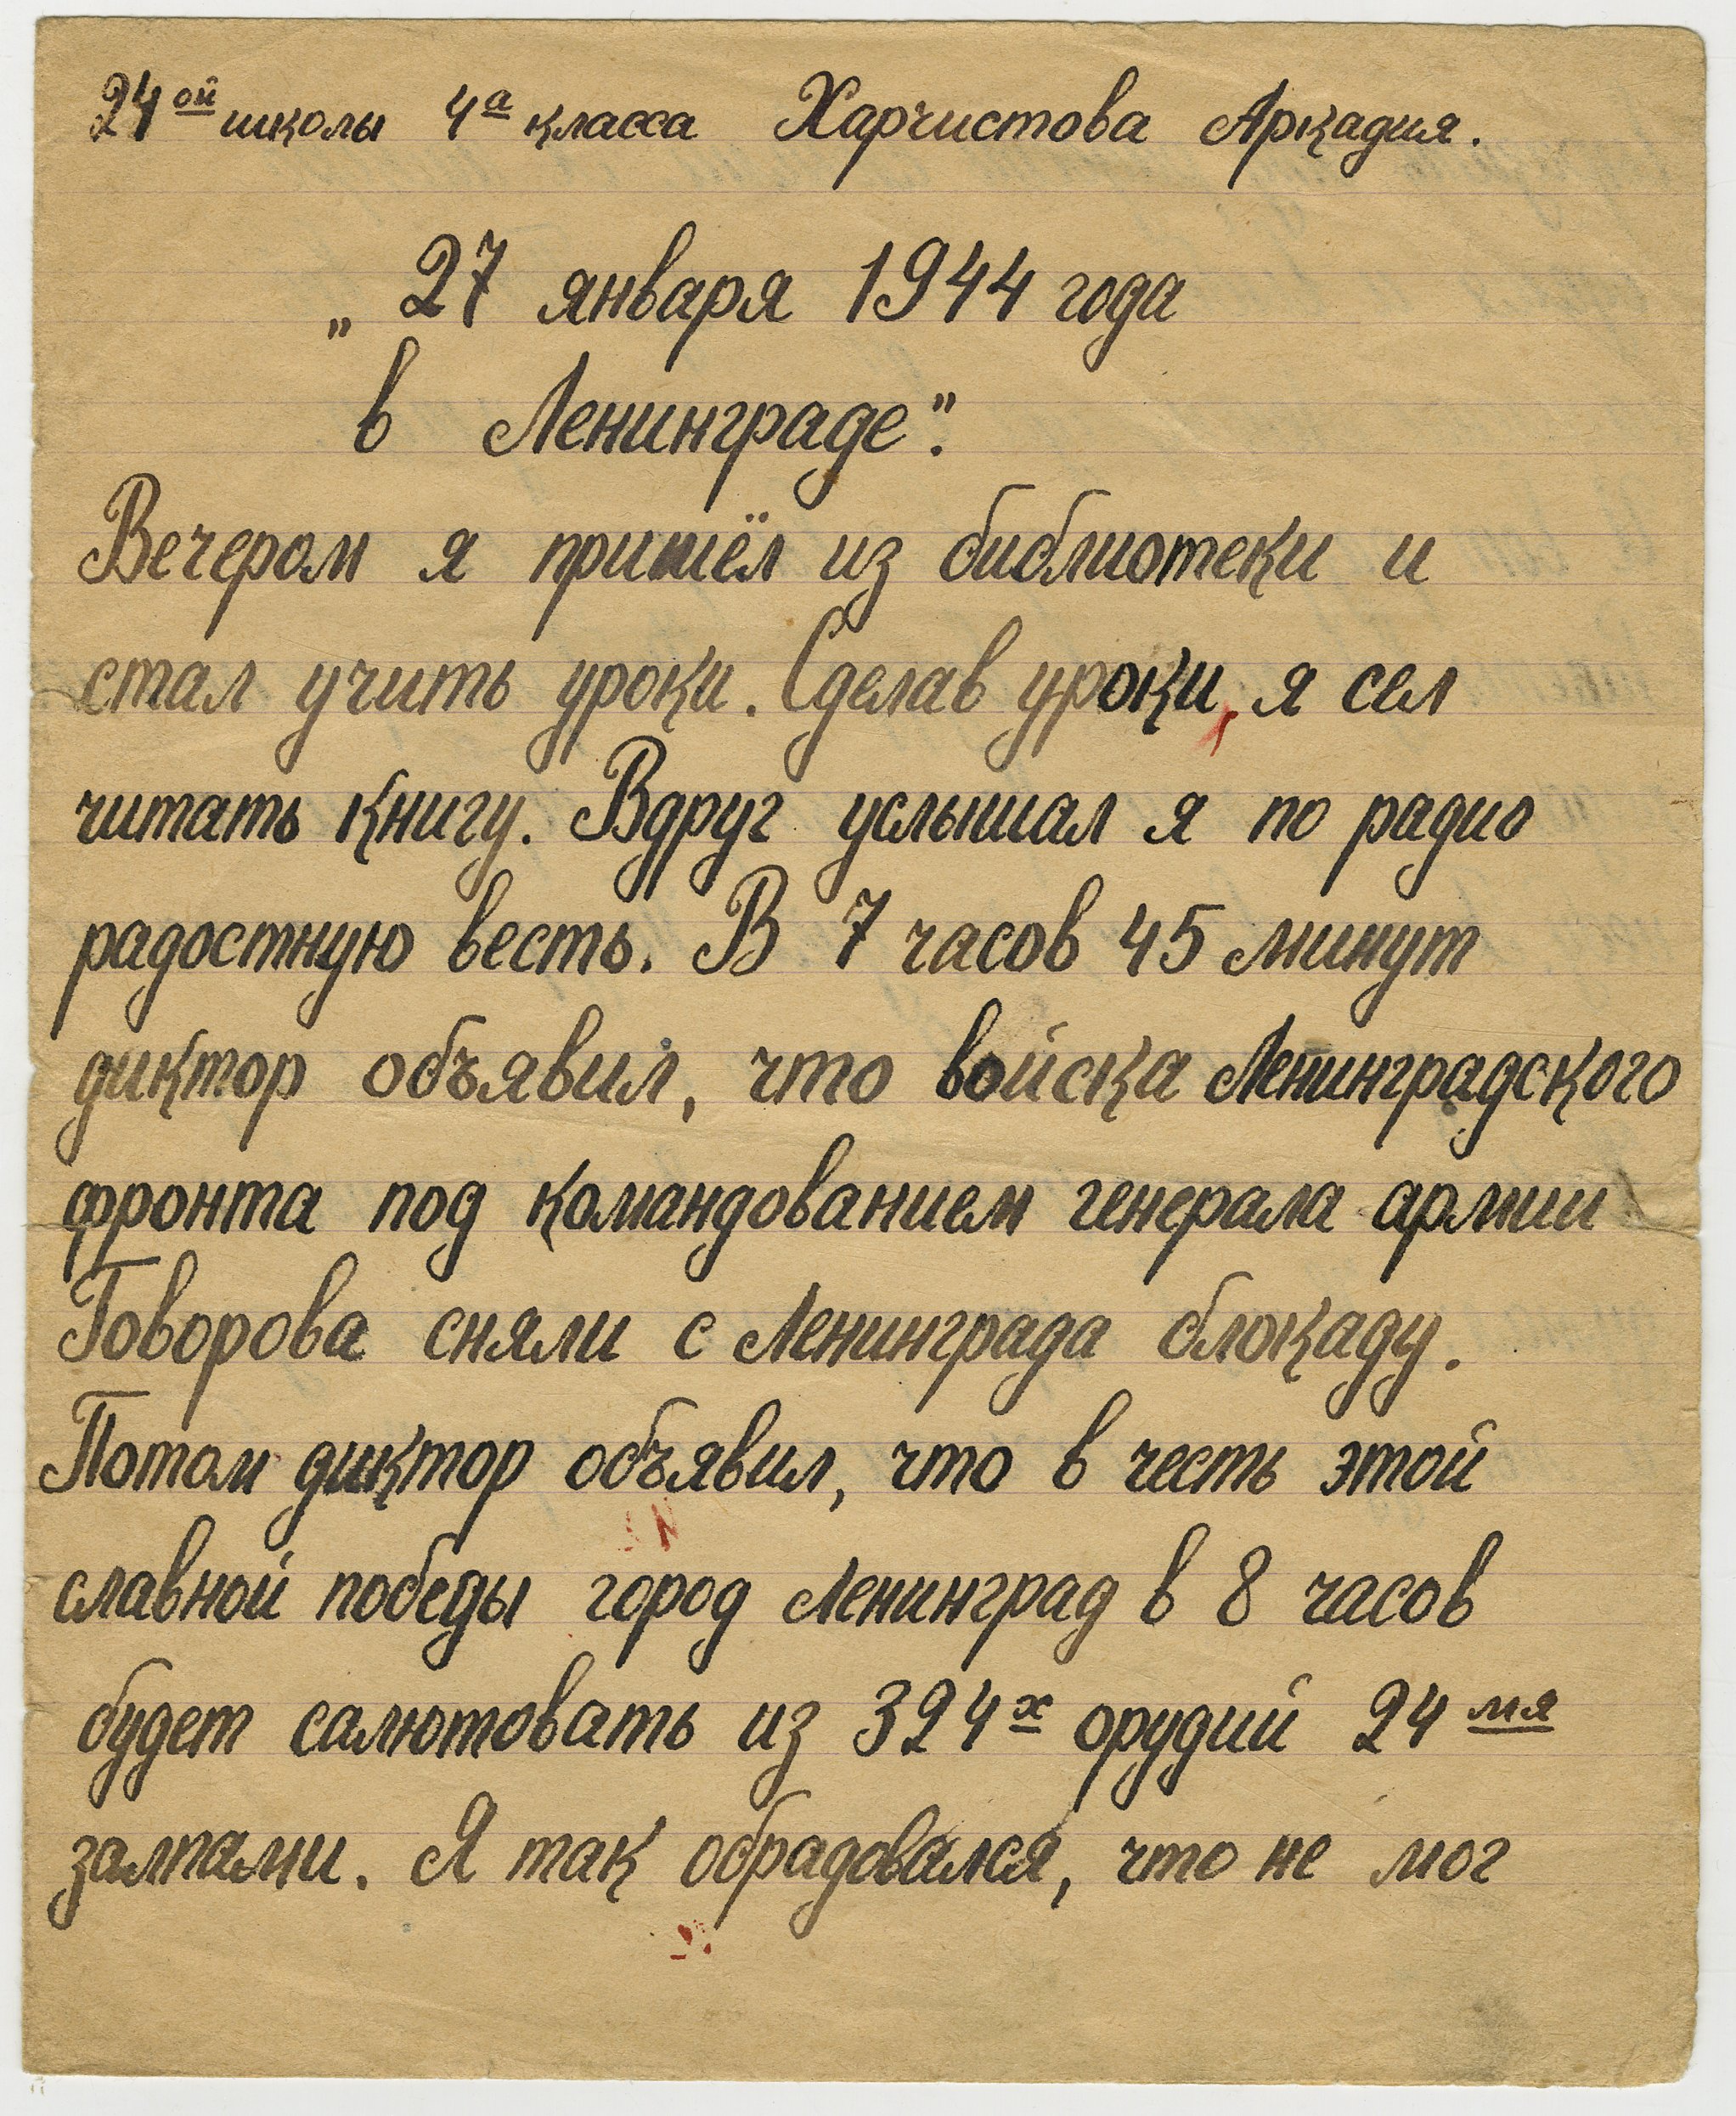 24ой школы 4а класса Харчистова Аркадия.
„27 января 1944 года
в Ленинграде".
Вечером я пришёл из библиотеки и
стал учить уроки. Сделав уроки, я сел
читать книгу. Вдруг услышал я по радио
радостную весть. В 7 часов 45 минут
диктор объявил, что войска Ленинградского
фронта под командованием генерала армии
Говорова сняли с Ленинграда блокаду.
Потом диктор объявил, что в честь этой
славной победы город Ленинград в 8 часов
будет салютовать из 324х орудий 24мя
залпами. Я так обрадовался, что не мог